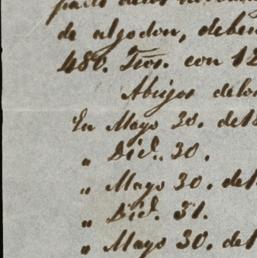 de algodon, deben
480. Tros. con 12
Abajos delos
En Mayo 30. de 18
„ Dic.e 30.
„ Mayo 30. de 1
„ Dic.e 31.
„ Mayo 30. de 1